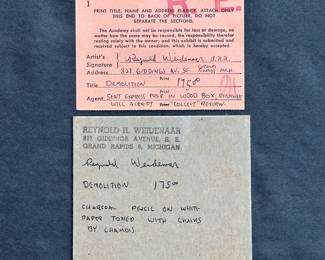 1
R
PRINT TITLE, NAME AND ADDRESS PLAINLY. ATTACH ONLY
THIS END TO BACK OF PICTURE. DO NOT
SEPARATE THE SECTIONS.
The Academy shall not be responsible for loss or damage, no
matter how the same may be caused, the responsibility therefor
resting solely with the owner; and this exhibit is submitted and
received subject to this condition, which is hereby accepted.
Artist's
Signature Reynold Weidenaar A.N.A.
Address 821 GIDDINGS AV. SE GRAND RAPIDS MICH
Title DEMOLITION 175.00
Agent SENT EXPRESS PREP IN WOOD BOX,
WILL ACCEPT "COLLECT" RETURN.
REYNOLD H. WEIDENAAR
821 GIDDINGS AVENUE, S. E.
GRAND RAPIDS 6, MICHIGAN
Reynold Weidenaar
DEMOLITION 175.00
CHARCOAL PENCIL ON WHITE
PAPER TONED WITH
BY CHAMOIS.